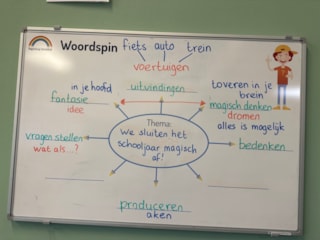 Woordspin
fiets auto trein
voertuigen
in je hoofd
fantasie
idee
uitvindingen
toveren in je
brein
magisch denken
dromen
alles is mogelijk
Thema:
We sluiten het
schooljaar magisch
af!
vragen stellen
wat als...?
bedenken
produceren
aken